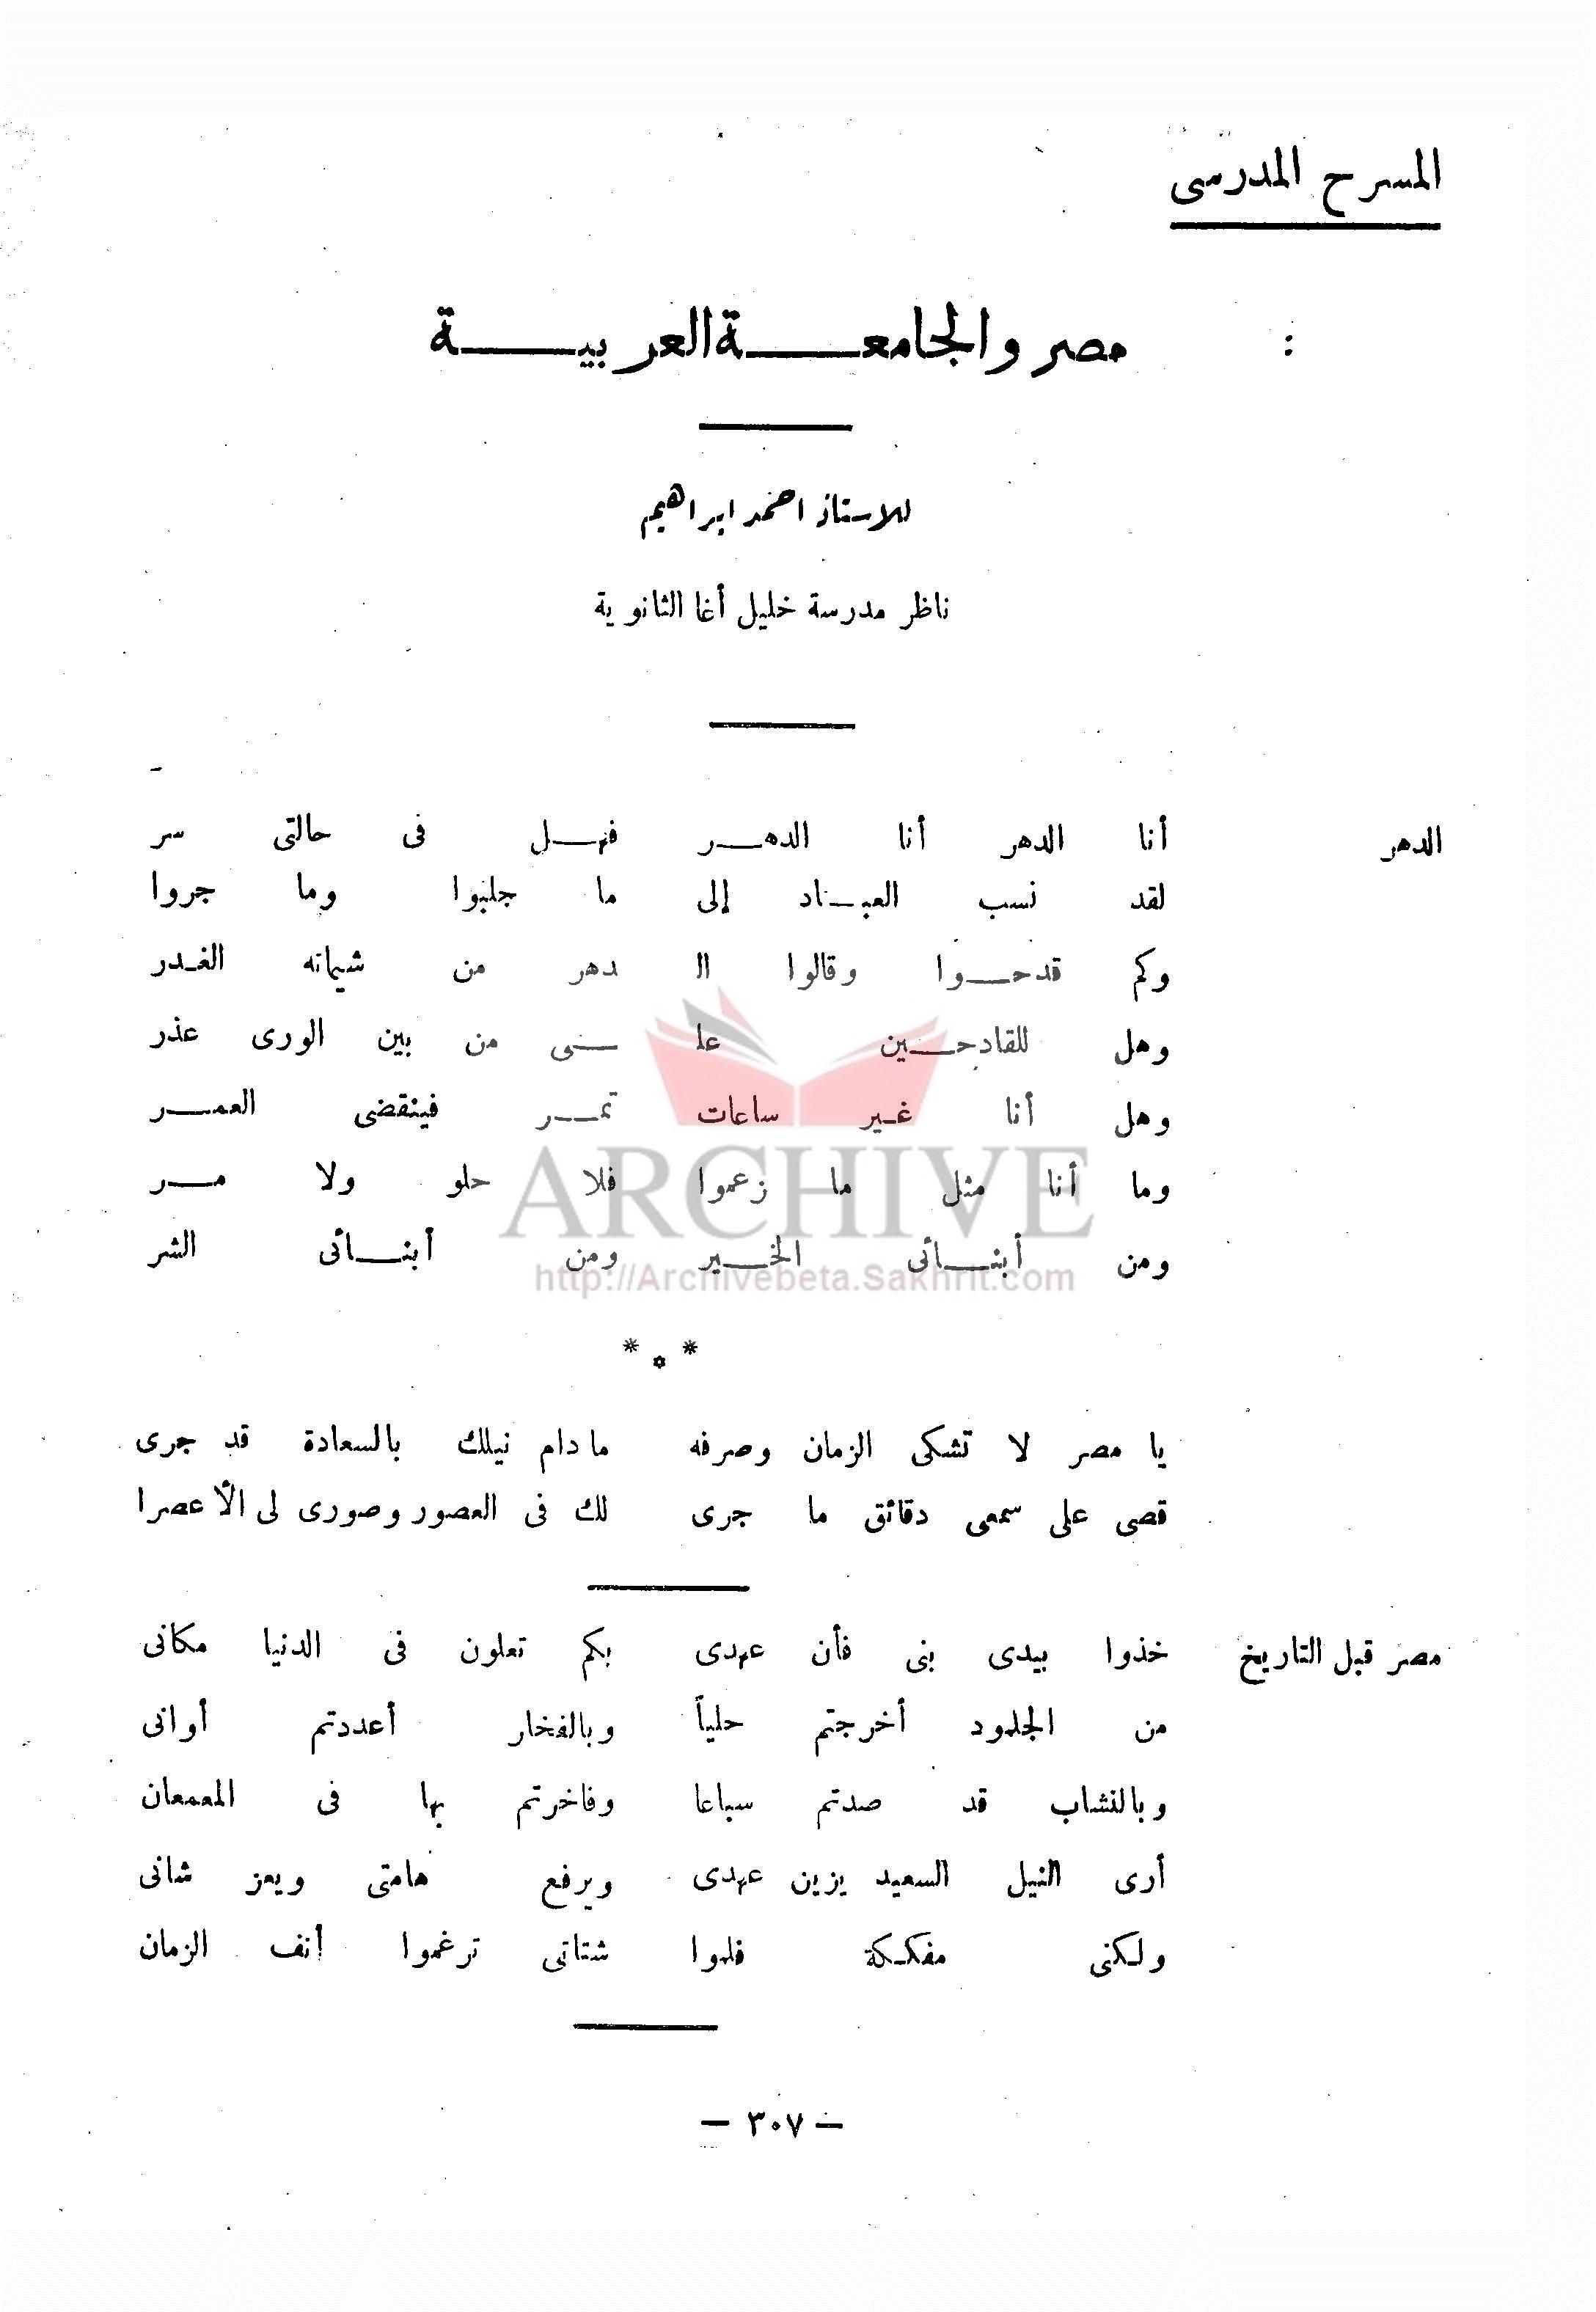 المسرح المدرسى
مصر والجامعة العربية :
للاستاذ احمد ابراهيم
ناظر مدرسة خليل أغا الثانوية
الدهر أنا الدهر أنا الدهر فهل فى حالتى سر
لقد نسب العباد إلى ما جلبوا وما جروا
وكم قدحوا وقالوا الدهر من شيماته الغدر
وهل للقادحين علىّ من بين الورى عذر
وهل أنا غير ساعات تمر فينقضى العمر
وما أنا مثل ما زعموا فلا حلو ولا مر
ومن أبنائى الخير ومن أبنائى الشر
ARCHIVE
http://Archivebeta.Sakhrit.com
* * *
يا مصر لا تشكى الزمان وصرفه مادام نيلك بالسعادة قد جرى
قصى على سمعى دقائق ما جرى لك فى العصور وصورى لى الأعصرا
مصر قبل التاريخ خذوا بيدى بنى فأن عهدى بكم تعلون فى الدنيا مكانى
من الجلمود أخرجتم حلياً وبالفخار أعددتم أوانى
وبالنشاب قد صدتم سباعا وفاخرتم بها فى المعمعان
أرى النيل السعيد يزين عهدى ويرفع هامتى ويعز شانى
ولكنى مفككة فلموا شتاتى ترغموا أنف الزمان
— ٣٠٧ —